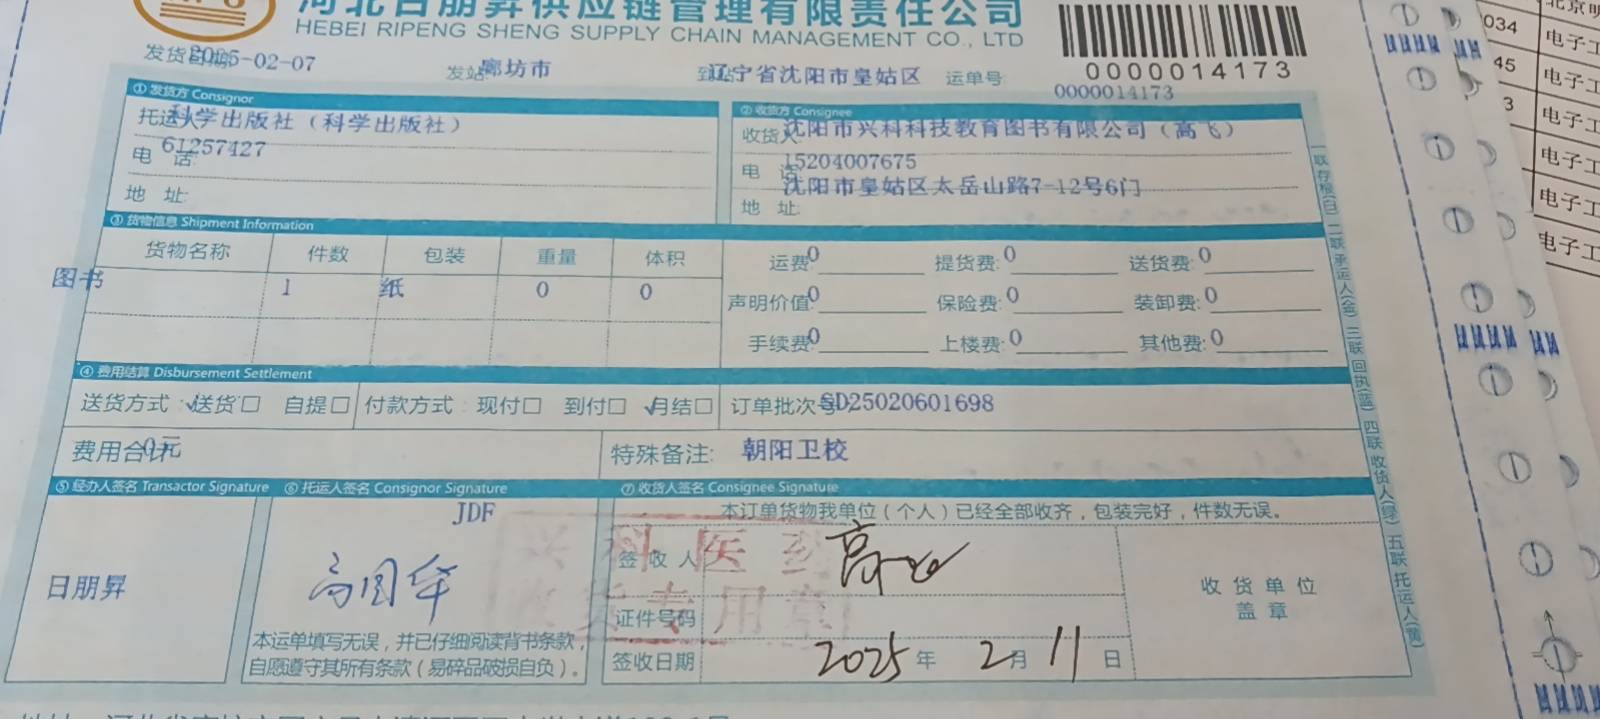 河北日朋昇供应链管理有限责任公司
HEBEI RIPENG SHENG SUPPLY CHAIN MANAGEMENT CO., LTD
发货日期 2025-02-07 发站 廊坊市 到站 辽宁省沈阳市皇姑区 运单号 0000014173
0000014173
① 发货方 Consignor
托运人 科学出版社（科学出版社）
电 话 61257427
地 址:
② 收货方 Consignee
收货人 沈阳市兴科科技教育图书有限公司（高飞）
电 话 15204007675
沈阳市皇姑区太岳山路7-12号6门
地 址:
③ 货物信息 Shipment Information
货物名称 件数 包装 重量 体积
图书 1 纸 0 0
运费:0 提货费:0 送货费:0
声明价值:0 保险费:0 装卸费:0
手续费:0 上楼费:0 其他费:0
④ 费用结算 Disbursement Settlement
送货方式: √送货□ 自提□ 付款方式: 现付□ 到付□ √月结□ 订单批次号 SD25020601698
费用合计: 0元 特殊备注: 朝阳卫校
⑤ 经办人签名 Transactor Signature
日朋昇
⑥ 托运人签名 Consignor Signature
JDF
本运单填写无误，并已仔细阅读背书条款，
自愿遵守其所有条款（易碎品破损自负）。
⑦ 收货人签名 Consignee Signature
本订单货物我单位（个人）已经全部收齐，包装完好，件数无误。
签 收 人 高飞
证件号码
签收日期 2025 年 2 月 11 日
收 货 单 位
盖 章
兴科医药
收货专用章
一联存根(白) 二联承运人(金) 三联回执(蓝) 四联收货人(绿) 五联托运人(黄)
034 电子工
45 电子工
3 电子工
电子工
电子工
电子工